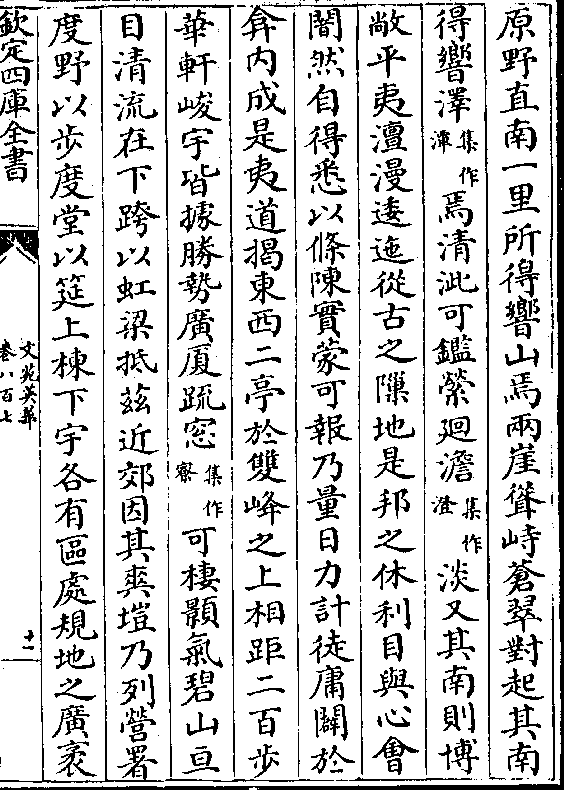 原野直南一里所得響山焉兩崖聳峙蒼翠對起其南
得響澤集作潭焉清泚可鑑縈廻澹集作澄淡又其南則博
敞平夷澶漫逶迤從古之隟地是邦之休利目與心會
闇然自得悉以條陳實蒙可報乃量日力計徒庸闢於
弇内成是夷道揭東西二亭於雙峰之上相距二百步
華軒峻宇皆據勝勢廣厦疏窓集作寮可棲顥氣碧山亘
目清流在下跨以虹梁抵茲近郊因其爽塏乃列營署
度野以步度堂以筵上棟下宇各有區處規地之廣袤
欽定四庫全書
文苑英華
卷八百七
十一